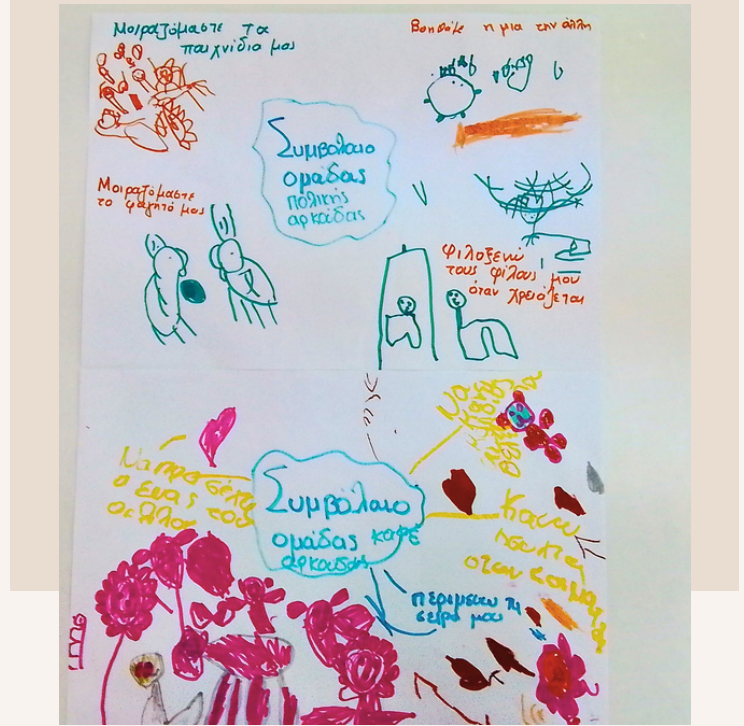 Μοιραζόμαστε τα
παιχνίδια μας
Βοηθάμε η μια την άλλη
Συμβόλαιο
ομάδας
πολικής
αρκούδας
Μοιραζόμαστε
το φαγητό μας
Φιλοξενώ
τους φίλους μου
όταν χρειάζεται
Να
ο ένας τον
άλλον
Συμβόλαιο
ομάδας καφέ
αρκούδας
Κάνω
όταν
περιμένω τη
σειρά μου